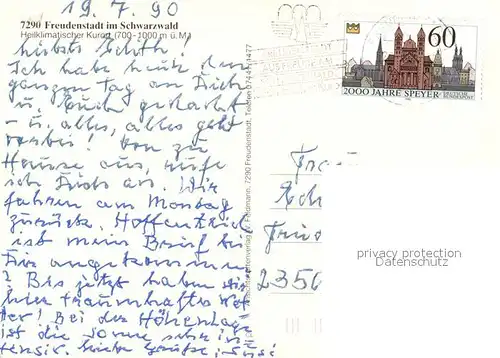 19.7.90
7290 Freudenstadt im Schwarzwald
Heilklimatischer Kurort (700-1000 m ü. M.)
Liebste Edith!
Ich habe heute den
ganzen Tag an Dich
u. Euch gedacht
- u. alles, alles geht
vorbei! Von zu
Hause aus, rufe
ich Dich an. Wir
fahren am Montag
zurück. Hoffentlich
ist mein Brief bei
Dir angekommen
? Bis jetzt haben wir
hier traumhaftes Wet
ter! Bei der Höhenlage
ist die Sonne sehr in
tensiv.
7290 Freudenstadt, Telefon 07441/
60
2000 JAHRE SPEYER
DEUTSCHE
BUNDESPOST
Frau
2350
privacy protection
Datenschutz